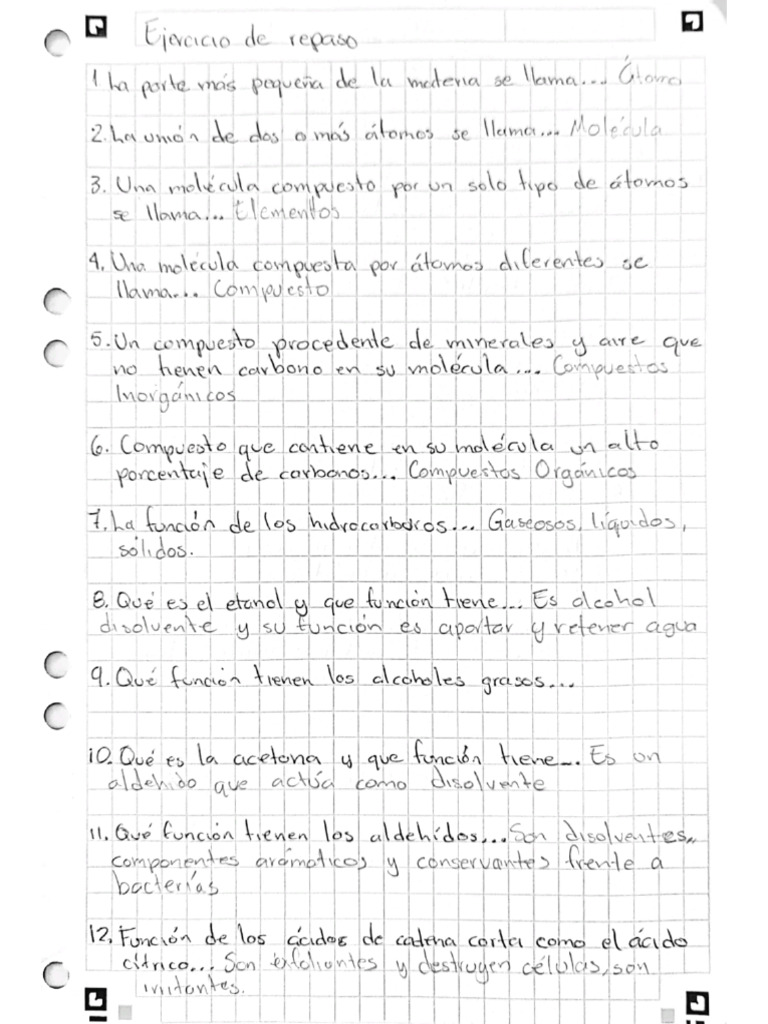 Ejercicio de repaso
1 La parte más pequeña de la materia se llama... Átomo
2. La unión de dos o más átomos se llama... Molécula
3. Una molécula compuesto por un solo tipo de átomos
se llama... Elementos
4. Una molécula compuesta por átomos diferentes se
llama... Compuesto
5. Un compuesto procedente de minerales y aire que
no tienen carbono en su molécula... Compuestos
Inorgánicos
6. Compuesto que contiene en su molécula un alto
porcentaje de carbonos... Compuestos Orgánicos
7. La función de los hidrocarburos... Gaseosos, líquidos,
sólidos.
8. Qué es el etanol y que función tiene... Es alcohol
disolvente y su función es aportar y retener agua
9. Qué función tienen los alcoholes grasos...
10. Qué es la acetona y que función tiene... Es un
aldehido que actúa como disolvente
11. Qué función tienen los aldehídos... Son disolventes,
componentes arómaticos y conservantes frente a
bacterías
12. Función de los ácidos de cadena corta como el ácido
cítrico... Son exfoliantes y destruyen células, son
irritantes.